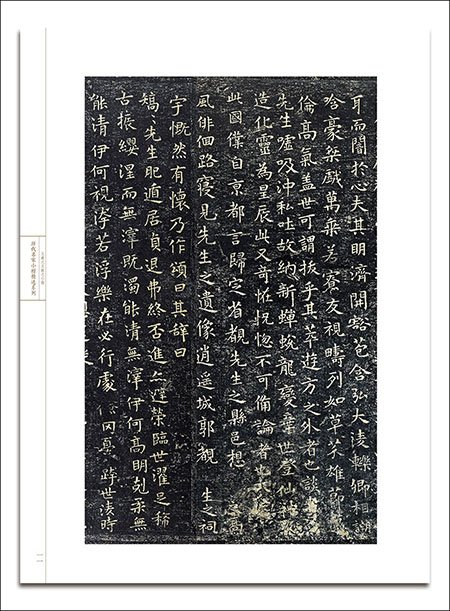 耳而闇於心夫其明濟開豁苞含弘大陵轢卿相
哈豪桀戲萬乘若寮友視疇列如草芥雄節
倫高氣盖世可謂拔乎其萃遊方之外者也談
先生噓吸沖和吐故納新蟬蛻龍變棄世登仙神
造化靈為星辰此又奇怪恍惚不可備論者也大
此國僕自京都言歸定省覩先生之縣邑想高
風俳佪路寢見先生之遺像逍遥城郭觀生之祠
宇慨然有懷乃作頌曰其辭曰
矯〻先生肥遁居貞退弗終否進亦避榮臨世濯足稀
古振纓涅而無滓既濁能清無滓伊何高明剋柔無
能清伊何視汙若浮樂在必行處儉罔憂跨世陵時
歷代名家小楷精選系列
一一